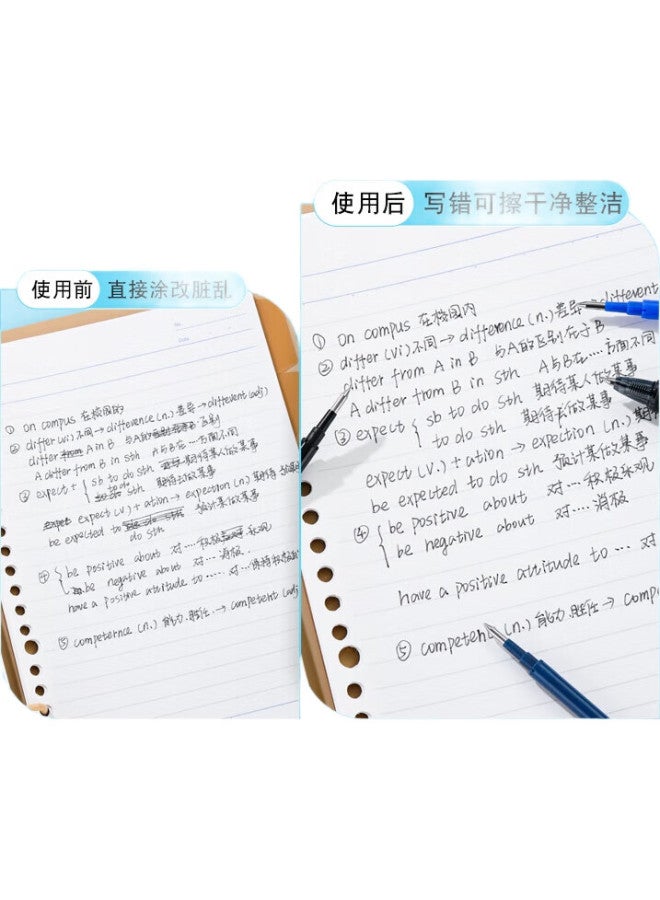 使用前 直接涂改脏乱
No.
Date
① On compus 在校园内
② differ (vi) 不同 → difference (n.) 差异 → different (adj)
differ from A in B 与A的 区别
A differ from B in sth A与B在…方面不同
③ expect + { sb to do sth 期待某人做某事
to do sth 期待去做某事
expect (v.) + ation → expection (n.) 期待
be expected to do sth 预计某做某事
④ { be positive about 对….积极乐观
be negative about 对…. 消极
have a positive attitude to ….. 对…
⑤ competernce (n.) 能力.胜任 → competent (adj
使用后 写错可擦干净整洁
① On compus 在校园内
② differ (vi) 不同 → difference (n.) 差异 → different
differ from A in B 与A的区别在于B
A differ from B in sth A与B在….方面不同
③ expect { sb to do sth 期待某人做某事
to do sth 期待去做某事
expect (v.) + ation → expection (n.) 期
be expected to do sth 预计某做某事
④ { be positive about 对….积极乐观
be negative about 对…. 消极
have a positive attitude to …. 对
⑤ competent (n.) 能力.胜任 → comp